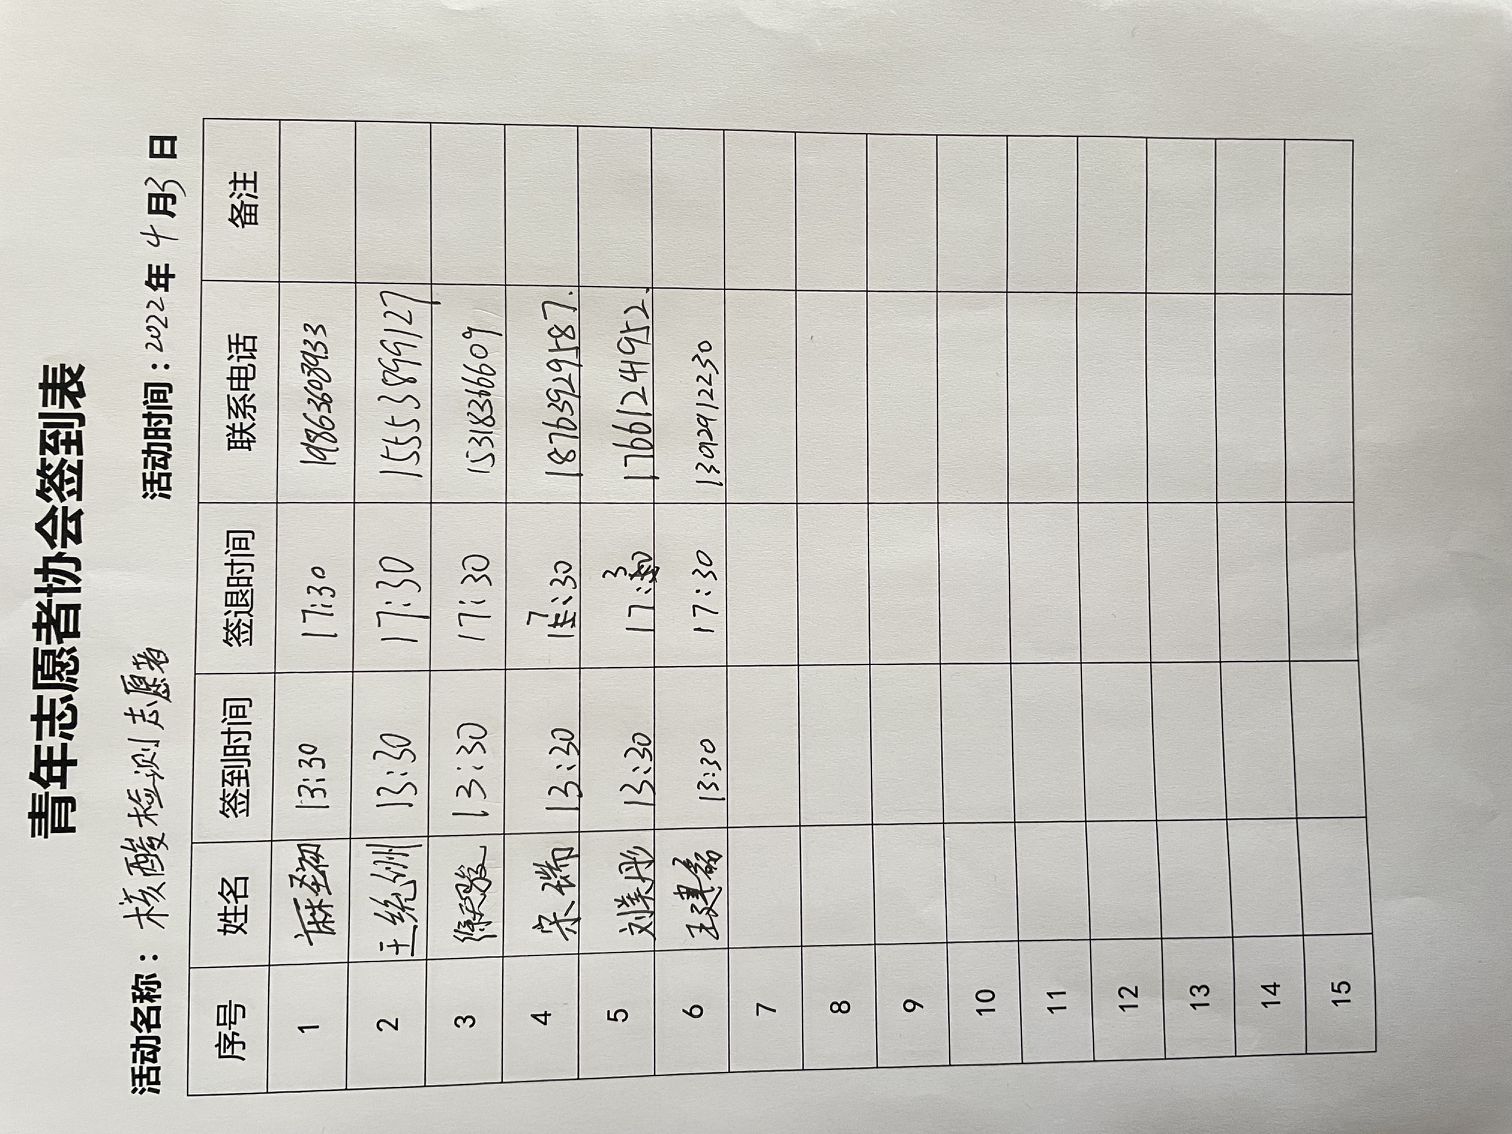 青年志愿者协会签到表
活动名称：核酸检测志愿者 活动时间：2022年4月3日
序号 姓名 签到时间 签退时间 联系电话 备注
1 13:30 17:30 19863608933
2 王统州 13:30 17:30 15553899127
3 徐天骏 13:30 17:30 15318366609
4 宋瑞 13:30 17:30 18763929587.
5 刘美彤 13:30 17:30 17661241952.
6 王建茹 13:30 17:30 1392912230
7
8
9
10
11
12
13
14
15